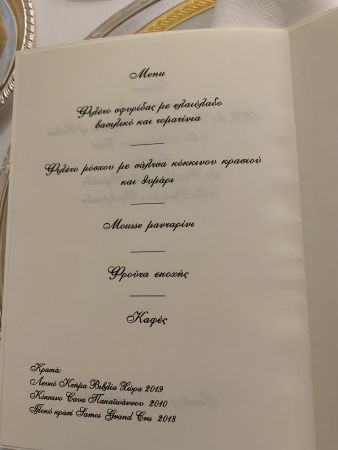 Menu
Φιλέτο σφυρίδας με ελαιόλαδο
βασιλικό και τοματίνια
Φιλέτο μόσχου με σάλτσα κόκκινου κρασιού
και θυμάρι
Mousse μανταρίνι
Φρούτα εποχής
Καφές
Κρασιά:
Λευκό Κτήμα Βιβλία Χώρα 2019
Κόκκινο Cava Παπαϊωάννου 2010
Γλυκό κρασί Samos Grand Cru 2018